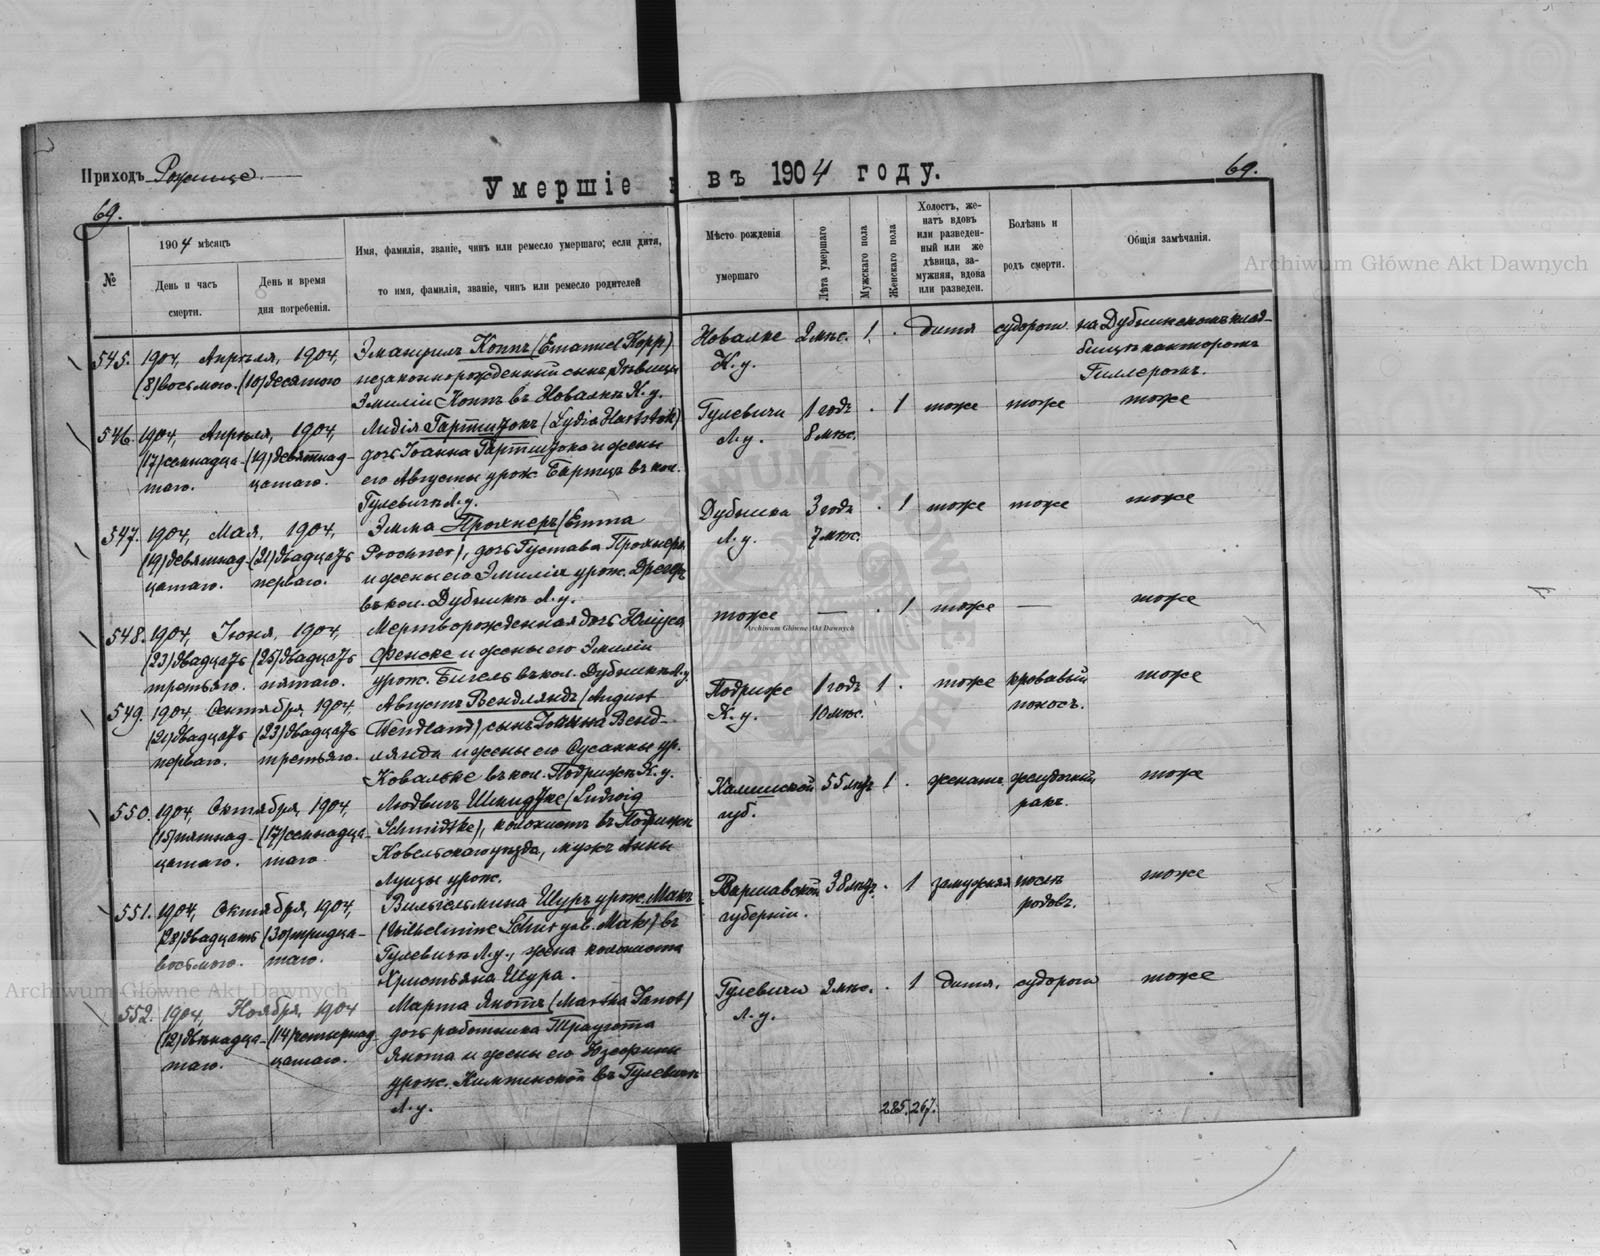 Приходъ Рожище
Умершіе въ 1904 году.
69.
69.
№
1904 мѣсяцъ
День и часъ
смерти.
День и время
дня погребенія.
Имя, фамилія, званіе, чинъ или ремесло умершаго; если дитя,
то имя, фамилія, званіе, чинъ или ремесло родителей
Мѣсто рожденія
умершаго
Лѣта умершаго
Мужскаго пола
Женскаго пола
Холостъ, же-
натъ вдовъ
или разведен-
ный или же
дѣвица, за-
мужняя, вдова
или разведен.
Болѣзнь и
родъ смерти.
Общія замѣчанія.
545. 1904, Апрѣля, 1904,
(8) восьмого. (10) десятого
Эмануилъ Коппъ (Emanuel Kopp)
незаконнорожденный сынъ дѣвицы
Эмиліи Коппъ въ Новалкѣ К. у.
Новалке
К. у.
2 мѣс. 1. . дитя судороги
на Дубищенскомъ клад-
бищѣ канторомъ
Гиллеромъ.
546. 1904, Апрѣля, 1904,
(17) семнадца-
таго.
(19) девятнад-
цатаго.
Лидія Гартштокъ (Lydia Hartstok)
дочь Іоанна Гартштока и жены
его Августы урож. Бартцъ въ кол.
Гулевичѣ Л. у.
Гулевичи
Л. у.
1 годъ
8 мѣс.
. 1 тоже тоже тоже
547. 1904, Мая, 1904,
(19) девятнад-
цатаго.
(21) двадцать
перваго.
Эмма Прохнеръ (Emma
Prochner), дочь Густава Прохнера
и жены его Эмиліи урож. Дрегеръ
въ кол. Дубищѣ Л. у.
Дубища
Л. у.
3 года
7 мѣс.
. 1 тоже тоже тоже
548. 1904, Іюня, 1904,
(23) двадцать
третьяго.
(25) двадцать
пятаго.
Мертворожденная дочь Юліуса
Фенске и жены его Эмиліи
урож. Бигель въ кол. Дубищѣ Л. у
тоже — . 1 тоже — тоже
549. 1904, Сентября, 1904
(21) двадцать
перваго.
(23) двадцать
третьяго.
Августъ Вендландъ (August
Wendland) сынъ Іоанна Венд-
ланда и жены его Сусанны ур.
Ковальке въ кол. Подрижѣ К. у.
Подриже
К. у.
1 годъ
10 мѣс.
1 . тоже кровавый
поносъ.
тоже
550. 1904, Октября, 1904,
(15) пятнад-
цатаго.
(17) семнадца-
таго
Людвигъ Шмидтке (Ludwig
Schmidtke), колонистъ въ Подрижѣ
Ковельскаго уѣзда, мужъ Анны
Луизы урож.
Калишской
губ.
55 лѣтъ 1 . женатъ желудочный
ракъ.
тоже
551. 1904, Октября, 1904,
(28) двадцать
восьмого.
(30) тридца-
таго.
Вильгельмина Шуръ урож. Макъ
(Wilhelmine Schur geb. Mak) въ
Гулевичѣ Л. у., жена колониста
Христьяна Шура.
Варшавской
губерніи.
38 лѣтъ. . 1 замужняя послѣ
родовъ.
тоже
552. 1904, Ноября, 1904
(12) двѣнадца-
таго.
(14) четырнад-
цатаго.
Марта Янотъ (Martha Janot)
дочь работника Траугота
Янота и жены его Юзефины
урож. Климпинской въ Гулевичѣ
Л. у.
Гулевичи
Л. у.
2 мѣс. . 1 дитя. судороги тоже
285. 267.
Archiwum Główne Akt Dawnych
Archiwum Główne Akt Dawnych
Archiwum Główne Akt Dawnych